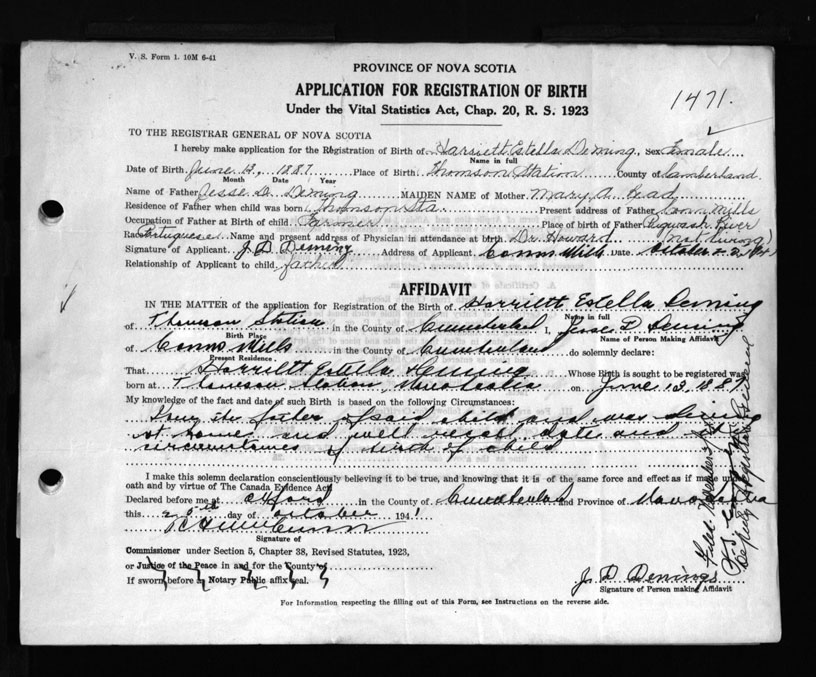 V. S. Form 1. 10M 6-41
PROVINCE OF NOVA SCOTIA
APPLICATION FOR REGISTRATION OF BIRTH
Under the Vital Statistics Act, Chap. 20, R. S. 1923
1471.
TO THE REGISTRAR GENERAL OF NOVA SCOTIA
I hereby make application for the Registration of Birth of Harriett Estella Deming, Sex Female
Name in full
Date of Birth June 13, 1887 Place of Birth Thomson Station County of Cumberland
Month Date Year
Name of Father Jesse D. Deming MAIDEN NAME of Mother Mary A. Read
Residence of Father when child was born Thomson Sta. Present address of Father Conns Mills
Occupation of Father at Birth of child Farmer Place of birth of Father Pugwash River
Race Portuguese Name and present address of Physician in attendance at birth Dr. Howard (not living)
Signature of Applicant J. D. Deming Address of Applicant Conns Mills Date October
Relationship of Applicant to child father
AFFIDAVIT
IN THE MATTER of the application for Registration of the Birth of Harriett Estella Deming
Name in full
of Thomson Station in the County of Cumberland I, Jesse D. Deming
Birth Place Name of Person Making Affidavit
of Conns Mills in the County of Cumberland do solemnly declare:
Present Residence
That Harriett Estella Deming Whose Birth is sought to be registered was
born at Thomson Station, Nova Scotia on June 13, 1887
My knowledge of the fact and date of such Birth is based on the following Circumstances:
I am the father of said child and was living
at home and well recall date and the
circumstances of birth of child
I make this solemn declaration conscientiously believing it to be true, and knowing that it is of the same force and effect as if made under
oath and by virtue of The Canada Evidence Act
Declared before me at Oxford in the County of Cumberland and Province of Nova Scotia
this day of October 1941
Signature of
Commissioner under Section 5, Chapter 38, Revised Statutes, 1923,
or Justice of the Peace in and for the County of
If sworn before a Notary Public affix seal.
J. D. Deming
Signature of Person making Affidavit
For Information respecting the filling out of this Form, see Instructions on the reverse side.
Deputy Registrar General